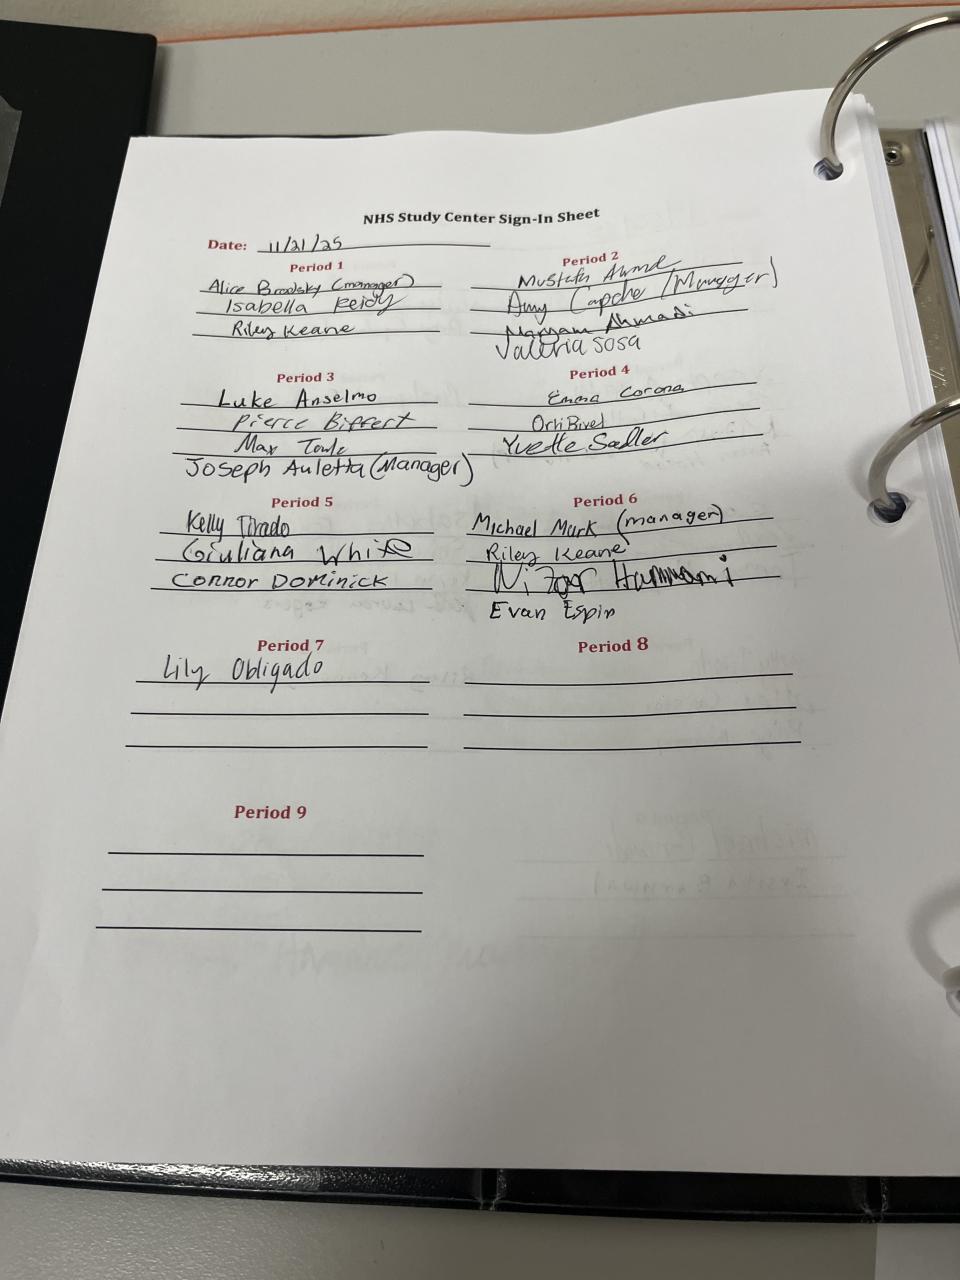 NHS Study Center Sign-In Sheet
Date: 11/21/25
Period 1
Alice Brodsky (manager)
Isabella Reidy
Riley Keane
Period 2
Mustafa
Amy Capche (Manager)
Maryam Ahmadi
Valeria Sosa
Period 3
Luke Anselmo
Pierce Biffert
Max Towle
Joseph Auletta (Manager)
Period 4
Emma Corona
Yvette Sadler
Period 5
Kelly Tirado
Giuliana White
Connor Dominick
Period 6
Michael Mark (manager)
Riley Keane
Nizar Hammami
Evan Espin
Period 7
Lily Obligado
Period 8
Period 9